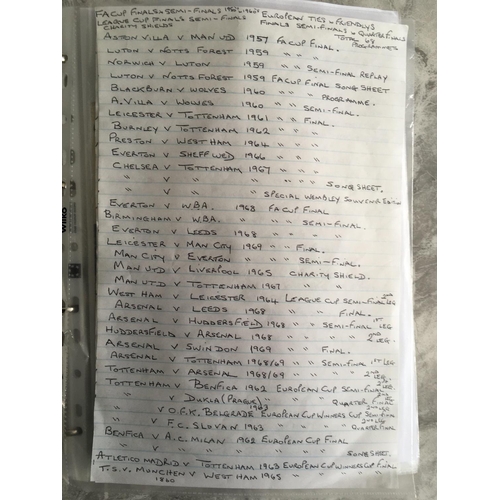 FA CUP FINALS & SEMI-FINALS 1950s-1960s EUROPEAN TIES - FRIENDLYS
LEAGUE CUP FINALS SEMI-FINALS FINALS SEMI-FINALS - QUARTER FINALS
CHARITY SHIELDS TOTAL 68 PROGRAMMES
ASTON VILLA V MAN UTD 1957 FA CUP FINAL.
LUTON V NOTTS FOREST 1959 " " "
NORWICH V LUTON 1959 " " SEMI-FINAL REPLAY
LUTON V NOTTS FOREST 1959 FA CUP FINAL SONG SHEET
BLACKBURN V WOLVES 1960 " " " PROGRAMME.
A.VILLA V WOLVES 1960 " " SEMI-FINAL.
LEICESTER V TOTTENHAM 1961 " " FINAL.
BURNLEY V TOTTENHAM 1962 " " "
PRESTON V WEST HAM 1964 " " "
EVERTON V SHEFF WED 1966 " " "
CHELSEA V TOTTENHAM 1967 " " "
" V " " " " SONG SHEET.
" V " " SPECIAL WEMBLEY SOUVENIR EDITION
EVERTON V WBA. 1968 FA CUP FINAL
BIRMINGHAM V WBA. " " " SEMI-FINAL.
EVERTON V LEEDS 1968 " " "
LEICESTER V MAN CITY 1969 " " FINAL.
MAN CITY V EVERTON " " " SEMI-FINAL.
MAN UTD V LIVERPOOL 1965 CHARITY SHIELD.
MAN UTD V TOTTENHAM 1967 " "
WEST HAM V LEICESTER 1964 LEAGUE CUP SEMI-FINAL 2ND LEG
ARSENAL V LEEDS 1968 " " FINAL.
ARSENAL V HUDDERSFIELD 1968 " " SEMI-FINAL 1ST LEG
HUDDERSFIELD V ARSENAL 1968 " " " " 2ND LEG.
ARSENAL V SWINDON 1969 " " FINAL.
ARSENAL V TOTTENHAM 1968/69 " " SEMI-FINAL 1ST LEG
TOTTENHAM V ARSENAL 1968/69 " " " " 2ND LEG.
TOTTENHAM V BENFICA 1962 EUROPEAN CUP SEMI-FINAL 2ND LEG.
" V DUKLA (PRAGUE) " " " QUARTER FINAL 2ND LEG
" V O.F.K. BELGRADE 1963 EUROPEAN CUP WINNERS CUP SEMI-FINAL 2ND LEG
" V F.C. SLOVAN 1963 " " " " QUARTER FINAL
BENFICA V A.C. MILAN 1963 EUROPEAN CUP FINAL
" V " " " " " SONG SHEET.
ATLETICO MADRID V TOTTENHAM 1963 EUROPEAN CUP WINNERS CUP FINAL
T.S.V. MUNCHEN V WEST HAM 1965 " " " " "
1860